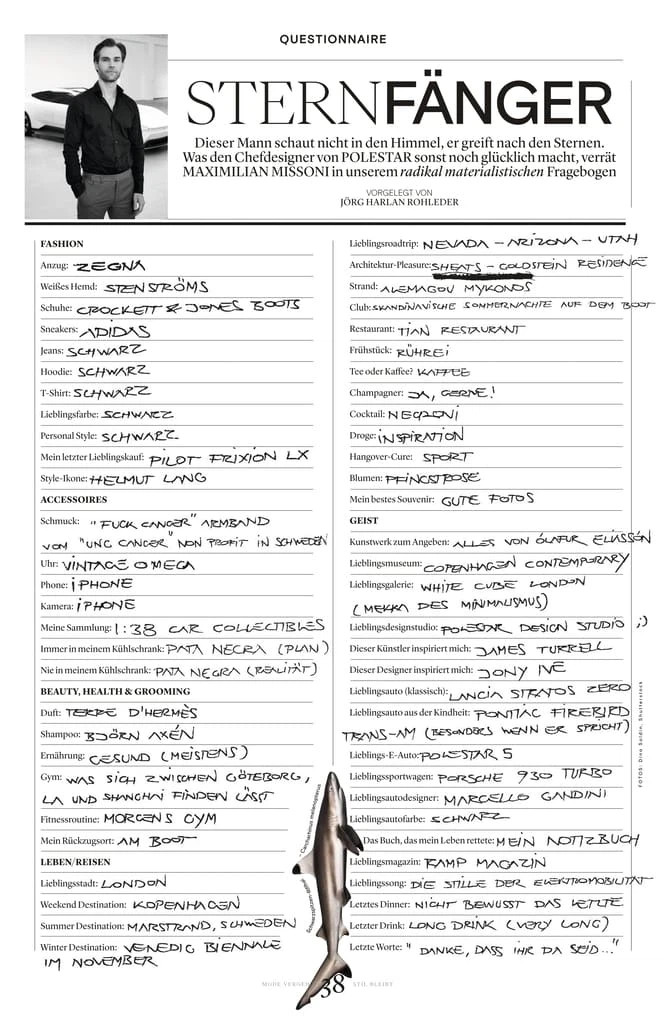 QUESTIONNAIRE
STERNFÄNGER
Dieser Mann schaut nicht in den Himmel, er greift nach den Sternen.
Was den Chefdesigner von POLESTAR sonst noch glücklich macht, verrät
MAXIMILIAN MISSONI in unserem radikal materialistischen Fragebogen
VORGELEGT VON
JÖRG HARLAN ROHLEDER
FASHION
Anzug: ZEGNA
Weißes Hemd: STENSTRÖMS
Schuhe: CROCKETT & JONES BOOTS
Sneakers: ADIDAS
Jeans: SCHWARZ
Hoodie: SCHWARZ
T-Shirt: SCHWARZ
Lieblingsfarbe: SCHWARZ
Personal Style: SCHWARZ
Mein letzter Lieblingskauf: PILOT FRIXION LX
Style-Ikone: HELMUT LANG
ACCESSOIRES
Schmuck: "FUCK CANCER" ARMBAND
VOM "UNG CANCER" NON PROFIT IN SCHWEDEN
Uhr: VINTAGE OMEGA
Phone: iPHONE
Kamera: iPHONE
Meine Sammlung: 1:38 CAR COLLECTIBLES
Immer in meinem Kühlschrank: PATA NEGRA (PLAN)
Nie in meinem Kühlschrank: PATA NEGRA (REALITÄT)
BEAUTY, HEALTH & GROOMING
Duft: TERRE D'HERMÈS
Shampoo: BJÖRN AXÉN
Ernährung: GESUND (MEISTENS)
Gym: WAS SICH ZWISCHEN GÖTEBORG,
LA UND SHANGHAI FINDEN LÄSST
Fitnessroutine: MORGENS GYM
Mein Rückzugsort: AM BOOT
LEBEN/REISEN
Lieblingsstadt: LONDON
Weekend Destination: KOPENHAGEN
Summer Destination: MARSTRAND, SCHWEDEN
Winter Destination: VENEDIG BIENNALE
IM NOVEMBER
Lieblingsroadtrip: NEVADA – ARIZONA – UTAH
Architektur-Pleasure: SHEATS – GOLDSTEIN RESIDENCE
Strand: ALEMAGOU MYKONOS
Club: SKANDINAVISCHE SOMMERNÄCHTE AUF DEM BOOT
Restaurant: TIAN RESTAURANT
Frühstück: RÜHREI
Tee oder Kaffee? KAFFEE
Champagner: JA, GERNE!
Cocktail: NEGRONI
Droge: INSPIRATION
Hangover-Cure: SPORT
Blumen: PFINGSTROSE
Mein bestes Souvenir: GUTE FOTOS
GEIST
Kunstwerk zum Angeben: ALLES VON ÓLAFUR ELIASSON
Lieblingsmuseum: COPENHAGEN CONTEMPORARY
Lieblingsgalerie: WHITE CUBE LONDON
(MEKKA DES MINIMALISMUS)
Lieblingsdesignstudio: POLESTAR DESIGN STUDIO ;)
Dieser Künstler inspiriert mich: JAMES TURRELL
Dieser Designer inspiriert mich: JONY IVE
Lieblingsauto (klassisch): LANCIA STRATOS ZERO
Lieblingsauto aus der Kindheit: PONTIAC FIREBIRD
TRANS-AM (BESONDERS WENN ER SPRICHT)
Lieblings-E-Auto: POLESTAR 5
Lieblingssportwagen: PORSCHE 930 TURBO
Lieblingsautodesigner: MARCELLO GANDINI
Lieblingsautofarbe: SCHWARZ
Das Buch, das mein Leben rettete: MEIN NOTIZBUCH
Lieblingsmagazin: RAMP MAGAZIN
Lieblingssong: DIE STILLE DER ELEKTROMOBILITÄT
Letztes Dinner: NICHT BEWUSST DAS LETZTE
Letzter Drink: LONG DRINK (VERY LONG)
Letzte Worte: "DANKE, DASS IHR DA SEID..."
Carcharhinus melanopterus
Schwarzspitzen-Riffhai
FOTOS: Dino Soldin, Shutterstock
MODE VERGEHT 38 STIL BLEIBT